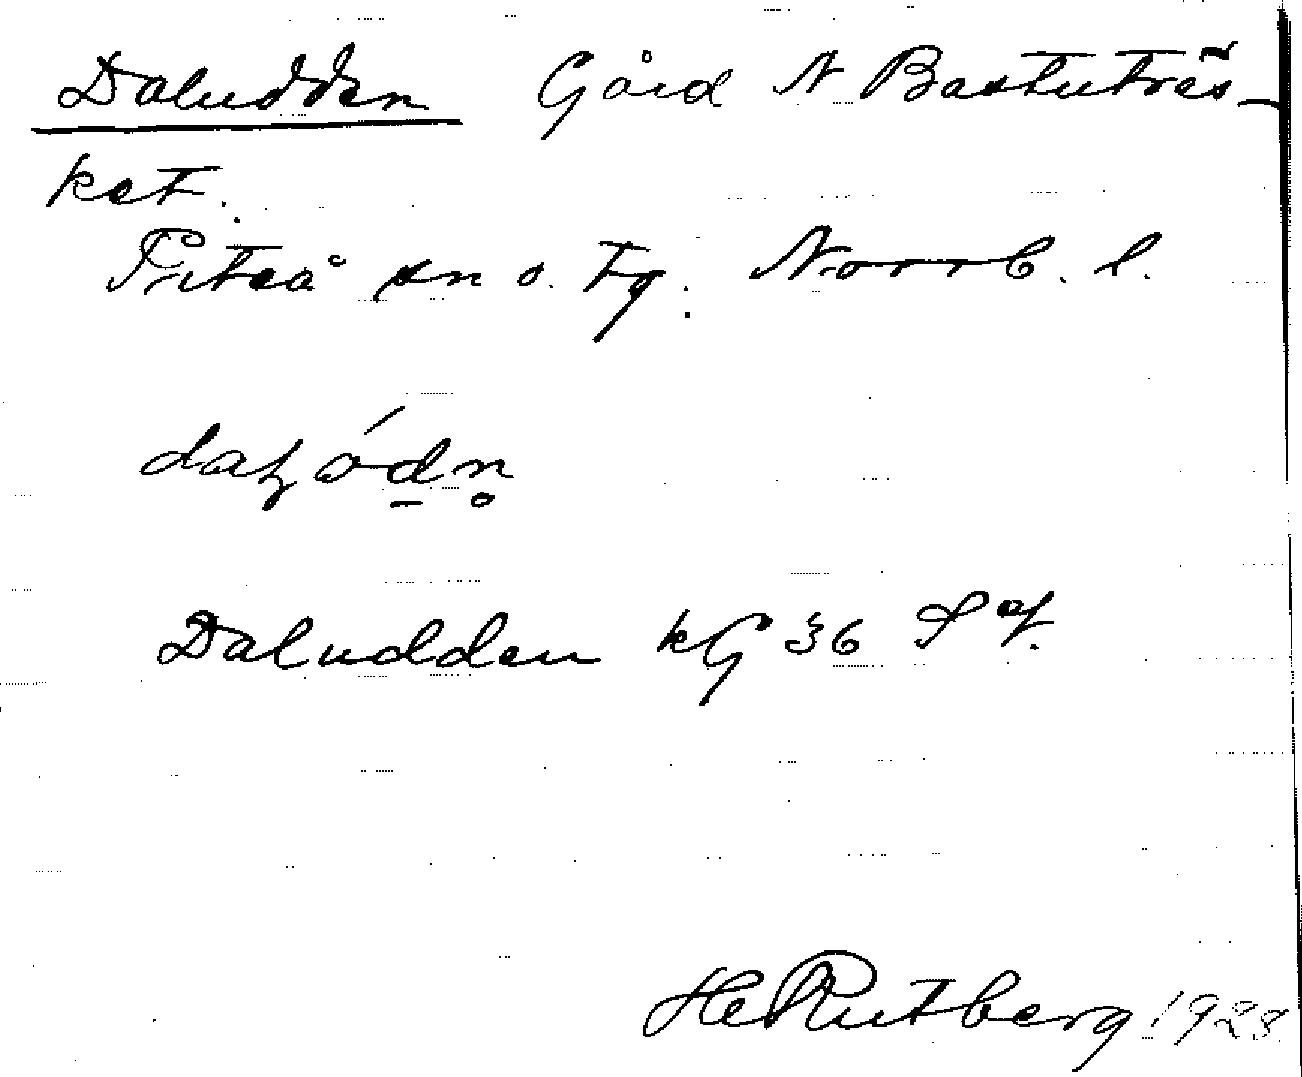 Daludden Gård N Bastuträs-
ket.
Piteå sn o. tg. Norrb. l.
Daludden kG 36 S
H Rutberg 1928